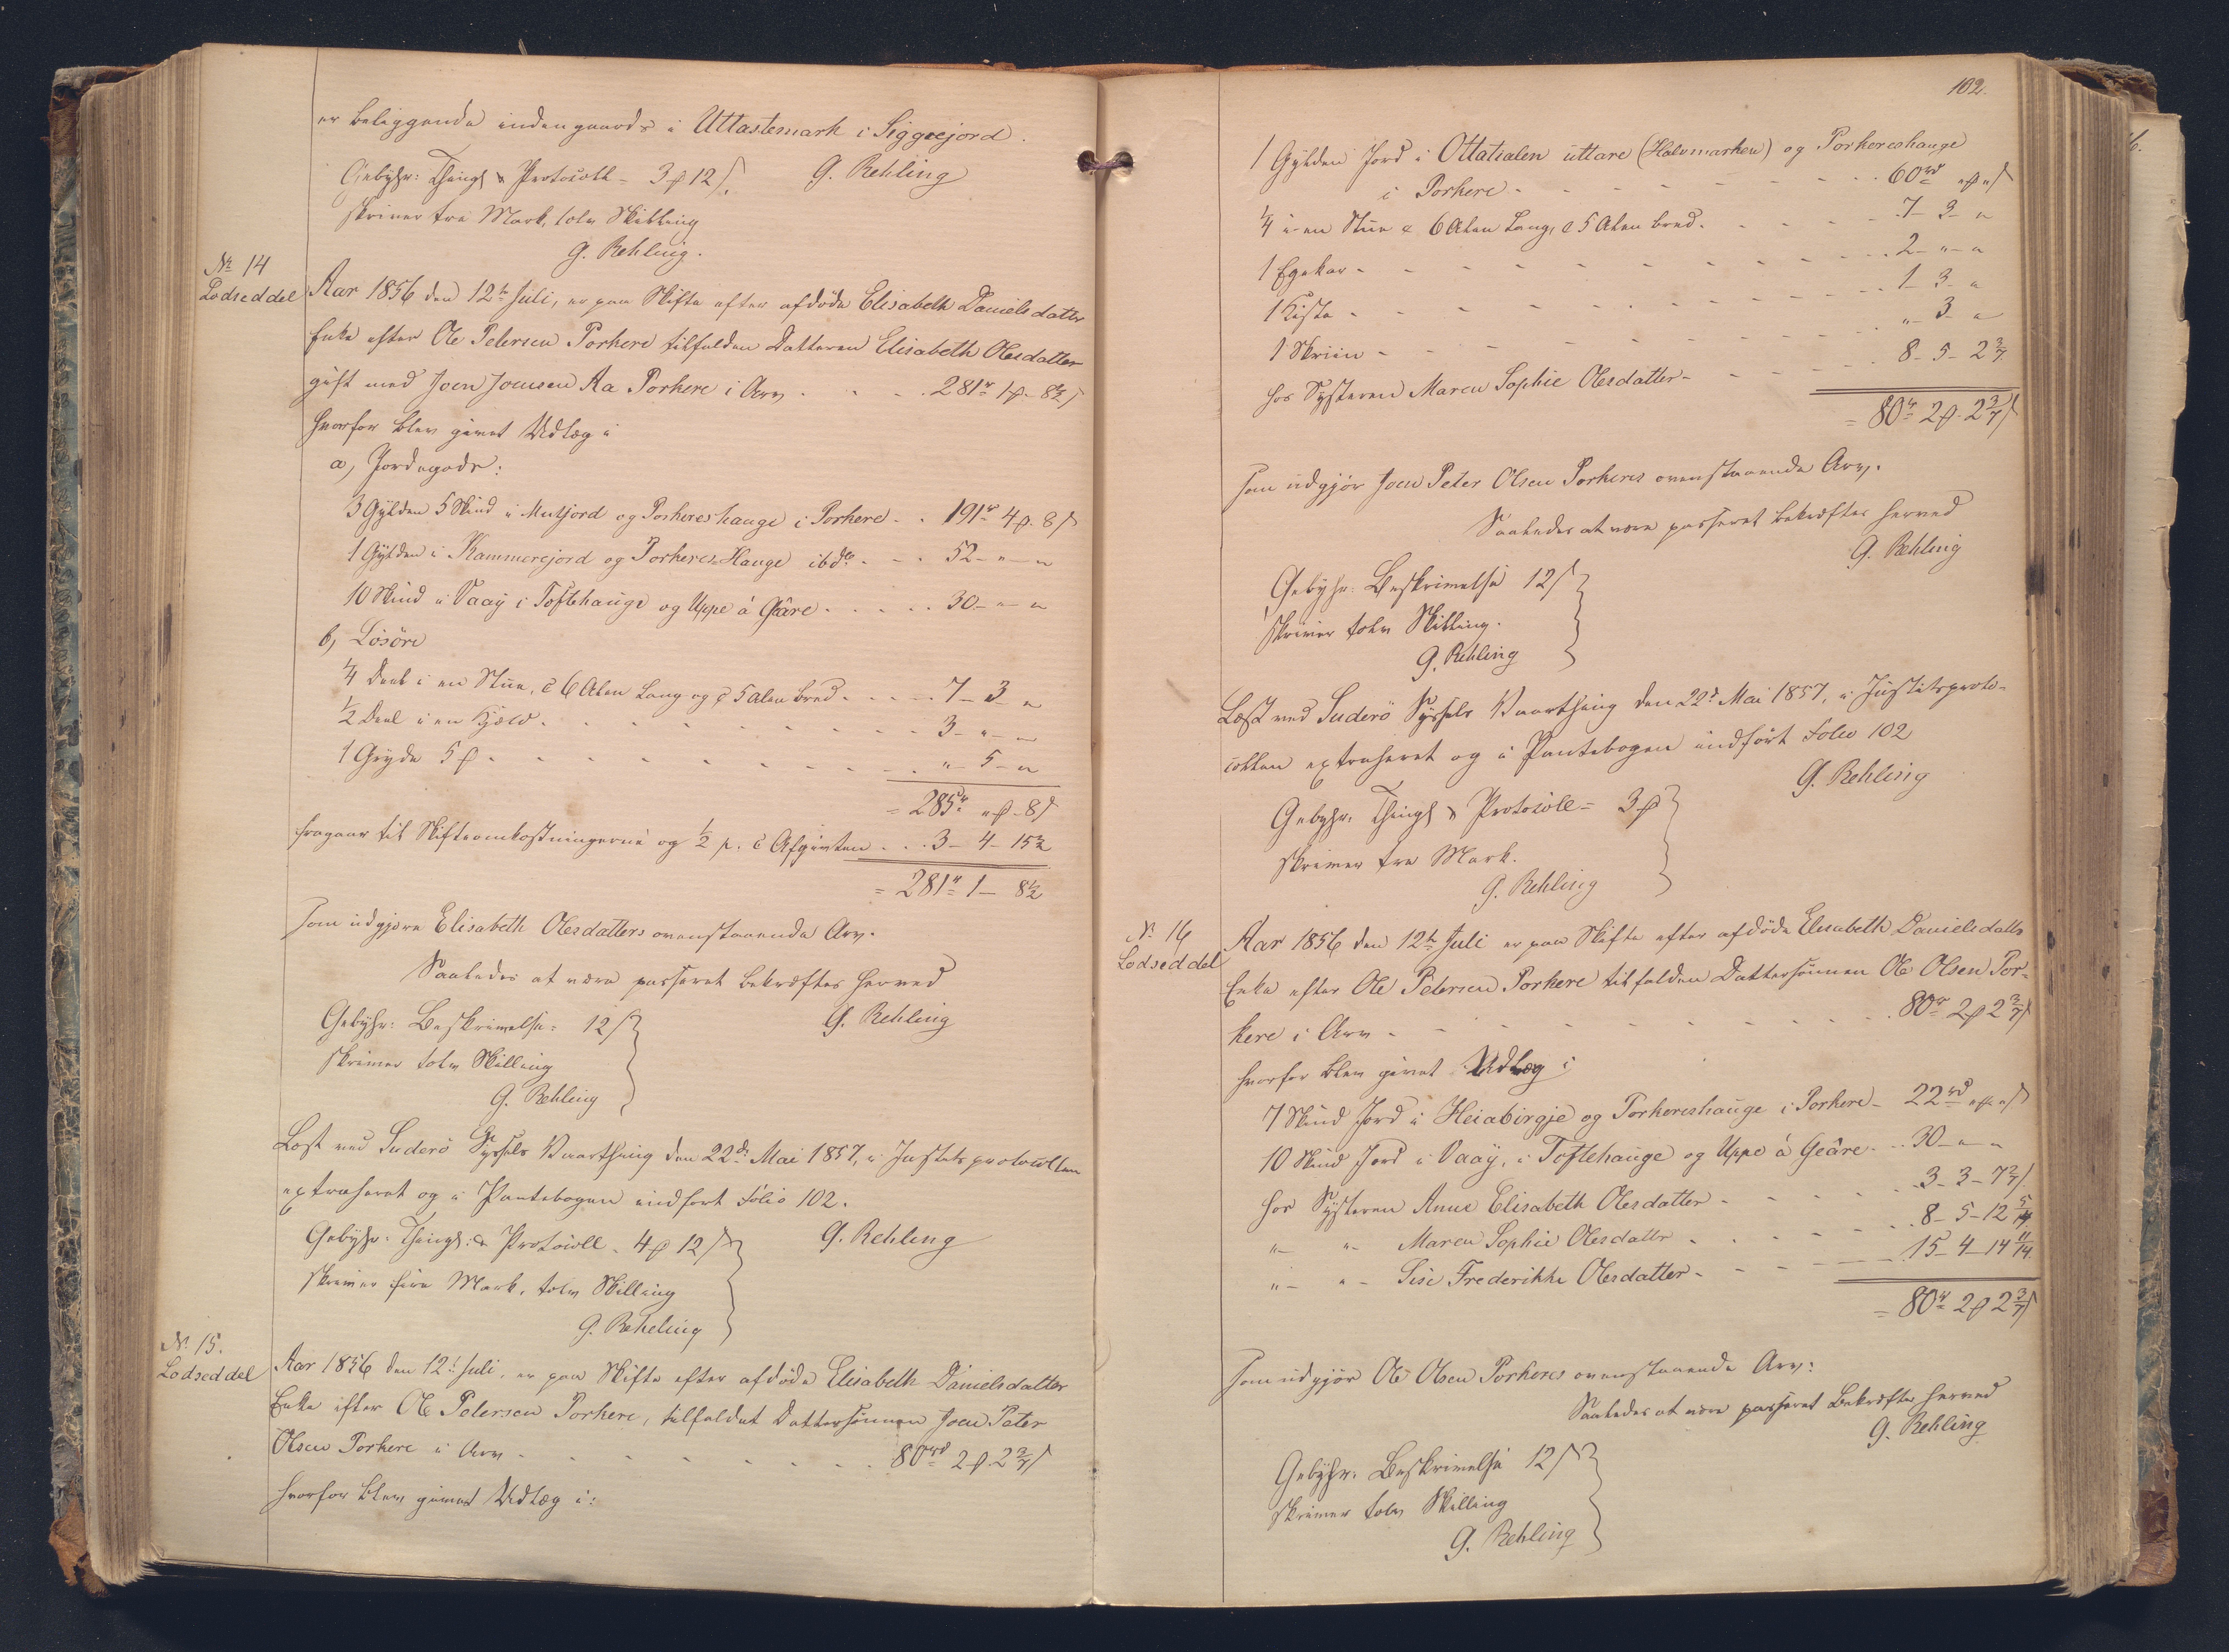 er beliggende indengaards i Uttastemark i Siggeejord.
Gebyhr: Thingl & Protocoll = 3 β 12 s. G. Rehling
skriver tre Mark, tolv Skilling
G. Rehling.
No 14
Lodseddel
Aar 1856 den 12te Juli, er paa Skifte efter afdøde Elisabeth Danielsdatter
Enke efter Ole Petersen Porkere tilfalden Datteren Elisabeth Olesdatter
gift med Joen Joensen Aa Porkere i Arv . . . 281r 1 β 8½ s
hvorfor blev givet Udlæg i
a, Jordegods:
3 Gylden 5 Skind i Mutjord og Porkereshauge i Porkere . . 191r 4 β 8 s
1 Gylden i Kammerejord og Porkeres-Hauge ibdo . . . 52 - " - "
10 Skind i Vaag i Toftehauge og Uppe á Gêare . . . . . 30 - " - "
b, Løsöre
¼ Deel i en Stue, c 6 Alen Lang og c 5 alen bred . . . . 7 - 3 - "
½ Deel i en Hjæld . . . . . . . . . 3 - " - "
1 Gryde 5 β . . . . . . . . . " - 5 - "
= 285r " β 8 s
fragaar til Skifteomkostningerne og ½ p. C Afgivten . . . 3 - 4 - 15½
= 281r 1 - 8½
som udgjøre Elisabeth Olesdatters ovenstaaende Arv.
Saaledes at være passeret bekræftes herved
Gebyhr: Beskrivelse = 12 s G. Rehling
skriver tolv Skilling
G. Rehling
Læst ved Suderö Syssels Vaarthing den 22de Mai 1857, i Justitsprotocollen
extraheret og i Pantebogen indført Folio 102.
Gebyhr: Thingl: & Protocoll = 4 β 12 s G. Rehling
skriver fire Mark, tolv Skilling
G. Rehling
No 15.
Lodseddel
Aar 1856 den 12te Juli, er paa Skifte efter afdøde Elisabeth Danielsdatter
Enke efter Ole Petersen Porkere, tilfaldet Dattersønnen Joen Peter
Olsen Porkere i Arv . . . . . . . . . 80rd 2 β 2 3/7 s
hvorfor blev givet Udlæg i:
102.
1 Gylden Jord i Ottatialen uttare (Halvmarken) og Porkereshauge
i Porkere . . . . . . . . . 60rd " β " s
¼ i en Stue c 6 Alen Lang, c 5 Alen bred . . . . . 7 - 3 - "
1 Egekar . . . . . . . . . 2 - " - "
1 Kiste . . . . . . . . . 1 - 3 - "
1 Skriin . . . . . . . . . " - 3 - "
hos Systeren Maren Sophie Olesdatter . . . . 8 - 5 - 2 3/7
= 80r 2 β 2 3/7 s
som udgjør Joen Peter Olsen Porkeres ovenstaaende Arv.
Saaledes at være passeret bekræftes herved
G. Rehling
Gebyhr: Beskrivelse 12 s
skriver tolv Skilling.
G. Rehling
Læst ved Suderö Syssels Vaarthing den 22de Mai 1857, i Justitsproto-
collen extraheret og i Pantebogen indført Folio 102
G. Rehling
Gebyhr: Thingl & Protocoll = 3 β
skriver tre Mark.
G. Rehling
No 16
Lodseddel
Aar 1856 den 12te Juli er paa Skifte efter afdøde Elisabeth Danielsdatter
Enke efter Ole Petersen Porkere tilfalden Dattersønnen Ole Olsen Por-
kere i Arv . . . . . . . . . 80r 2 β 2 3/7 s
hvorfor blev givet Udlæg i
7 Skind Jord i Heiabirgje og Porkereshauge i Porkere - 22rd " β " s
10 Skind Jord i Vaag, i Toftehauge og Uppe á Geâre . . 30 - " - "
hos Systeren Anne Elisabeth Olesdatter . . . . . 3 - 3 - 7 2/7 s
" - " - Maren Sophie Olesdatter . . . . . 8 - 5 - 12 5/14
" - " - Sise Frederikke Olesdatter . . . . . 15 - 4 - 14 11/14
= 80r 2 β 2 3/7 s
som udgjør Ole Olsen Porkeres ovenstaaende Arv:
Saaledes at være passeret Bekræftes herved
G. Rehling
Gebyhr: Beskrivelse 12 s
skriver tolv Skilling
G. Rehling